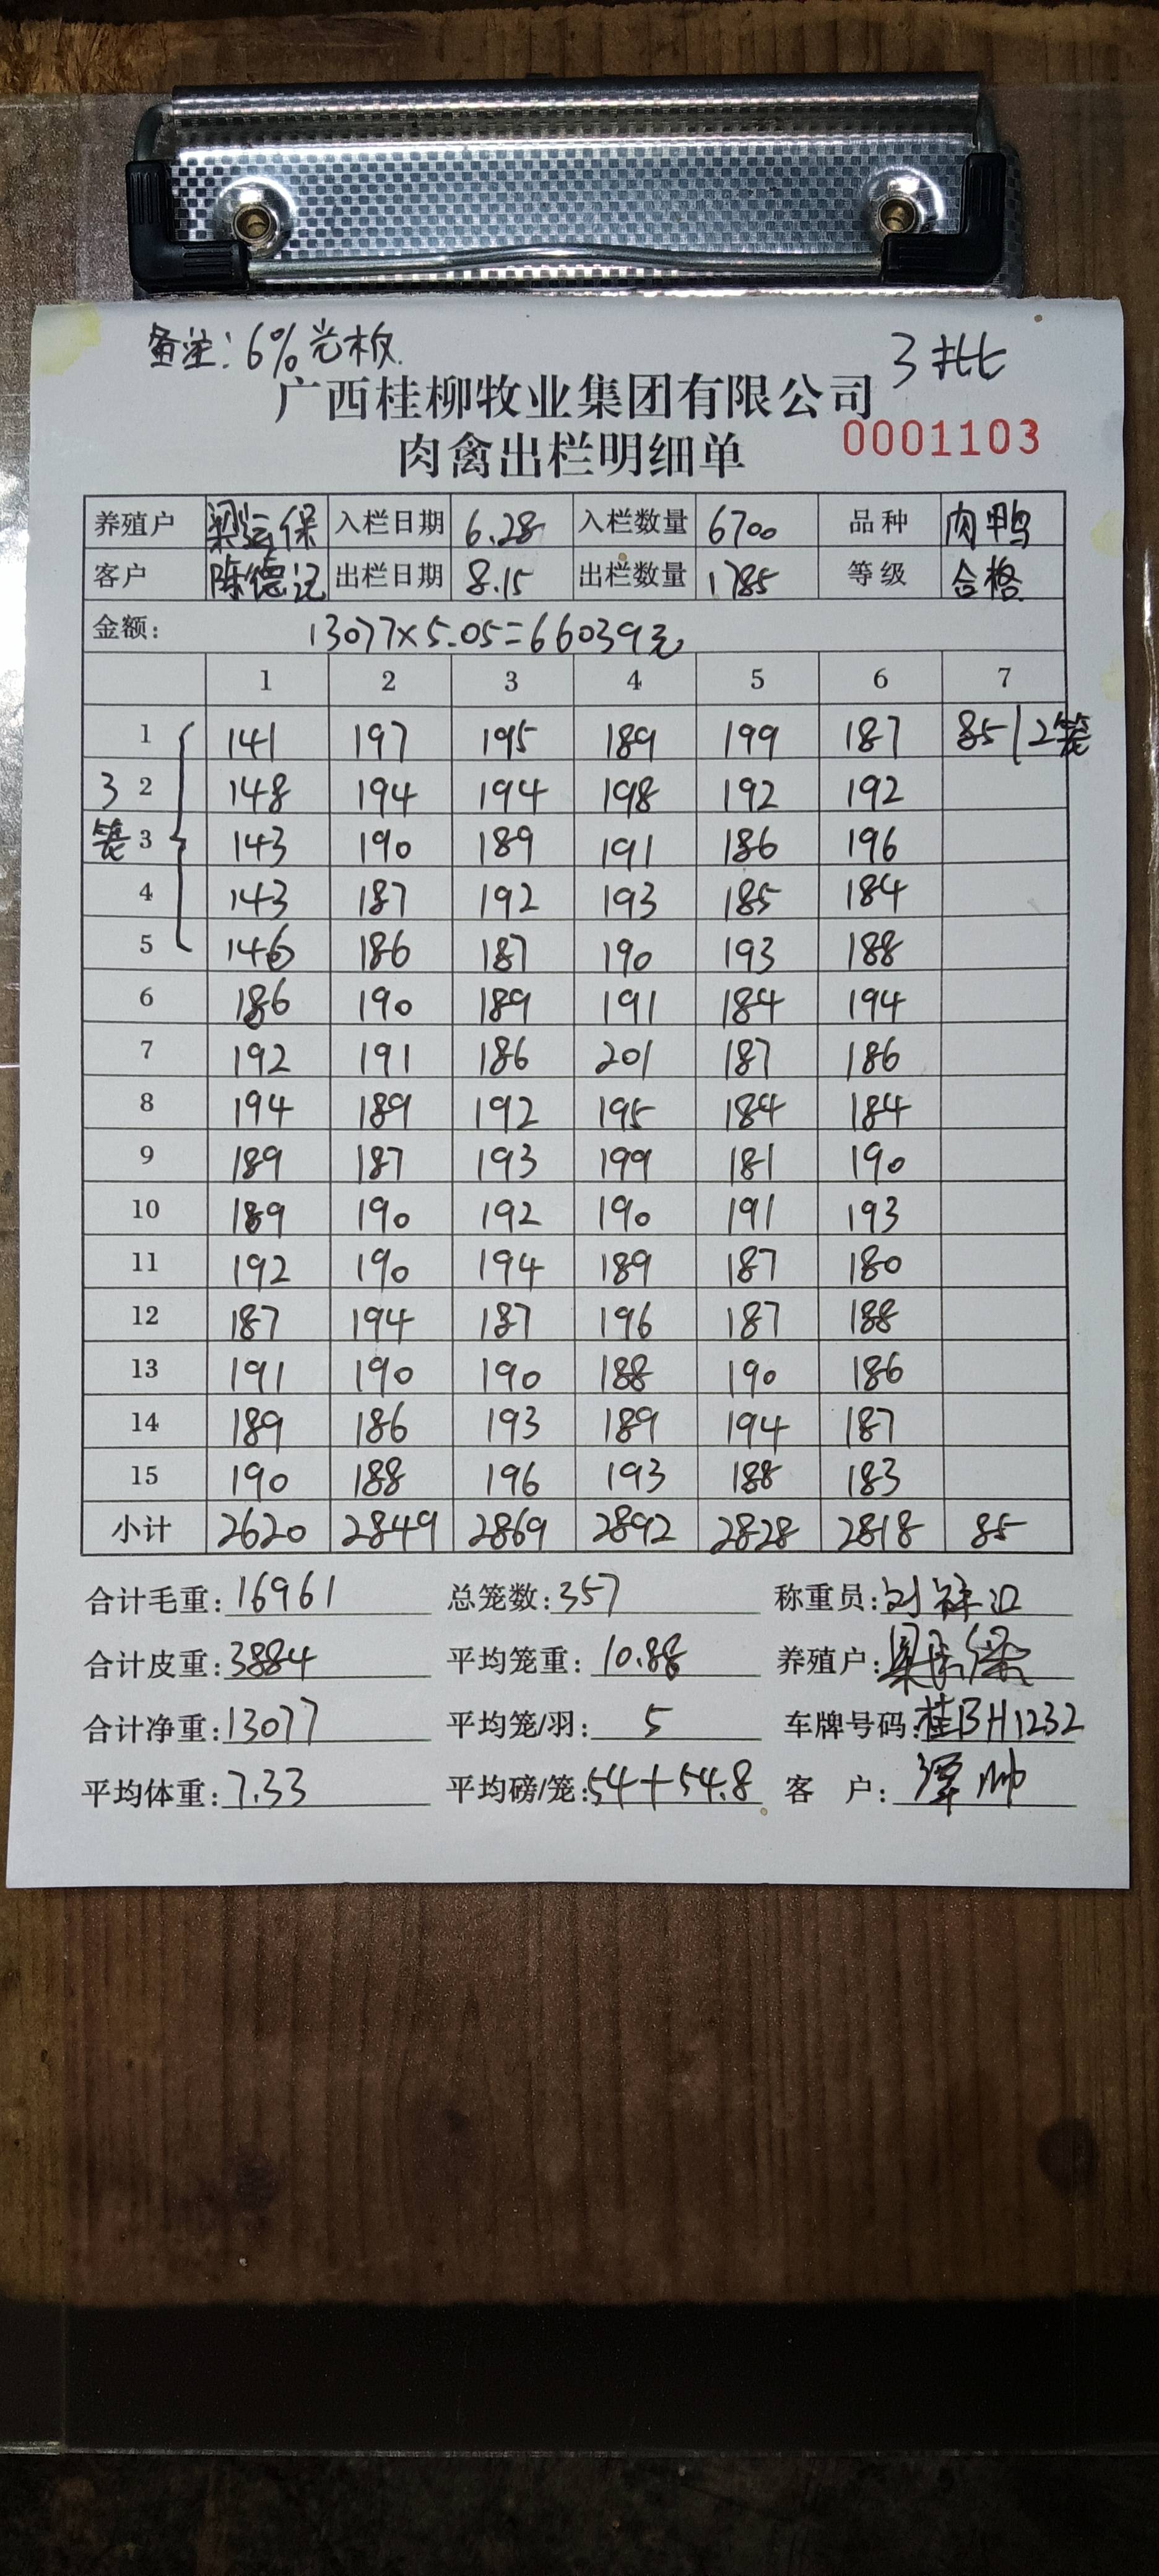 备注:6%光板.
3批
广西桂柳牧业集团有限公司
肉禽出栏明细单
0001103
养殖户 梁运保 入栏日期 6.28 入栏数量 6700 品种 肉鸭
客户 陈德记 出栏日期 8.15 出栏数量 1785 等级 合格
金额: 13077×5.05=66039元
1 2 3 4 5 6 7
1 141 197 195 189 199 187 85 2笼
3 2 148 194 194 198 192 192
笼 3 143 190 189 191 186 196
4 143 187 192 193 185 184
5 146 186 187 190 193 188
6 186 190 189 191 184 194
7 192 191 186 201 187 186
8 194 189 192 195 184 184
9 189 187 193 199 181 190
10 189 190 192 190 191 193
11 192 190 194 189 187 180
12 187 194 187 196 187 188
13 191 190 190 188 190 186
14 189 186 193 189 194 187
15 190 188 196 193 188 183
小计 2620 2849 2869 2892 2828 2818 85
合计毛重:16961 总笼数:357 称重员:
合计皮重:3884 平均笼重:10.88 养殖户:
合计净重:13077 平均笼/羽:5 车牌号码:桂BH1232
平均体重:7.33 平均磅/笼:54+54.8 客 户:谭帅